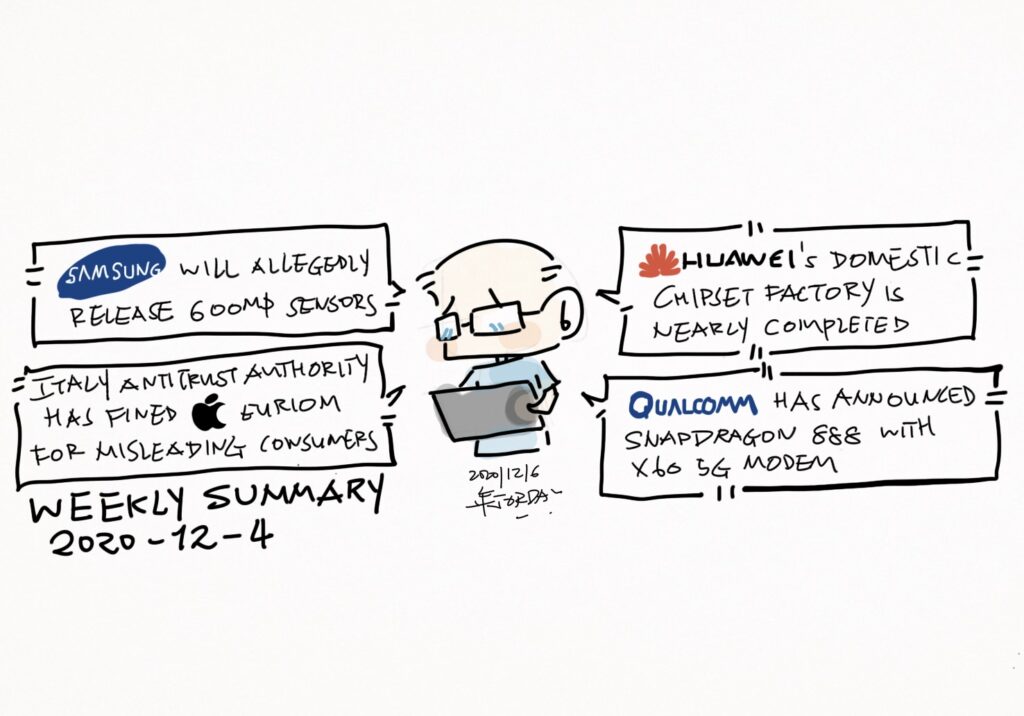 SAMSUNG WILL ALLEGEDLY
RELEASE 600MP SENSORS
ITALY ANTITRUST AUTHORITY
HAS FINED EUR10M
FOR MISLEADING CONSUMERS
WEEKLY SUMMARY
2020-12-4
HUAWEI's DOMESTIC
CHIPSET FACTORY IS
NEARLY COMPLETED
QUALCOMM HAS ANNOUNCED
SNAPDRAGON 888 WITH
X60 5G MODEM
2020/12/6